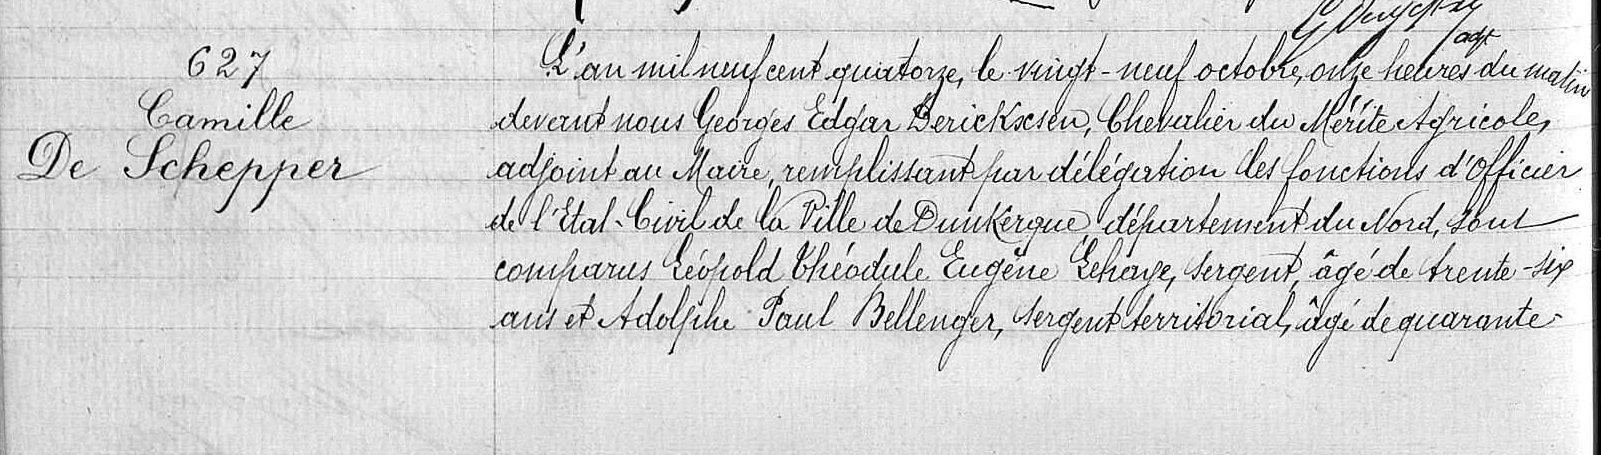 627
Camille
De Schepper
adjt
L'an mil neuf cent quatorze, le vingt-neuf octobre, onze heures du matin
devant nous Georges Edgar Dericksen, Chevalier du Mérite Agricole,
adjoint au Maire, remplissant par délégation les fonctions d'Officier
de l'Etat-Civil de la Ville de Dunkerque, département du Nord, sont
comparus Léopold Théodule Eugène Lehaye, sergent, âgé de trente-six
ans et Adolphe Paul Bellenger, sergent territorial, âgé de quarante-